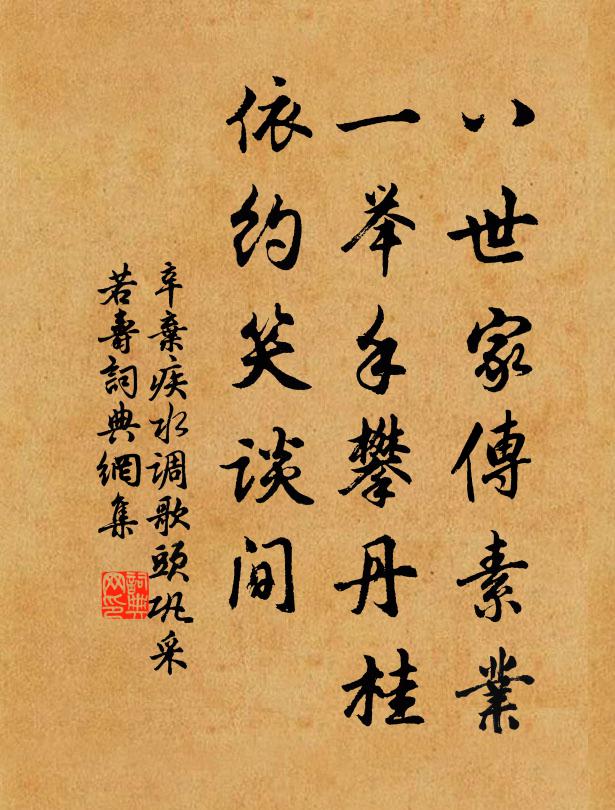 八世家傳素業
一举手攀丹桂
依约笑谈间
辛棄疾水调歌頭巩采
若壽詞典網集
詞典
网印